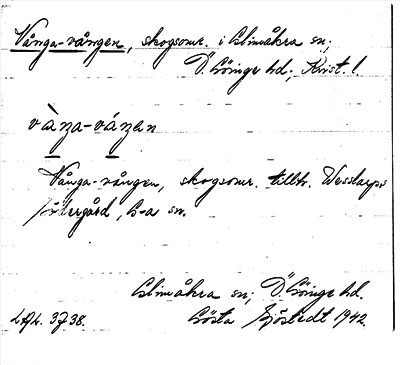 Vånga-vången, skogsomr. i Glimåkra sn;
Ö. Göinge hd.; Krist. l.
vàŋa-váŋen
Vånga-vången, skogsomr. tillhr. Wesslarps
Södergård, G-a sn.
Glimåkra sn; Ö. Göinge hd.
LAL. 3738. Gösta Sjöstedt 1942.